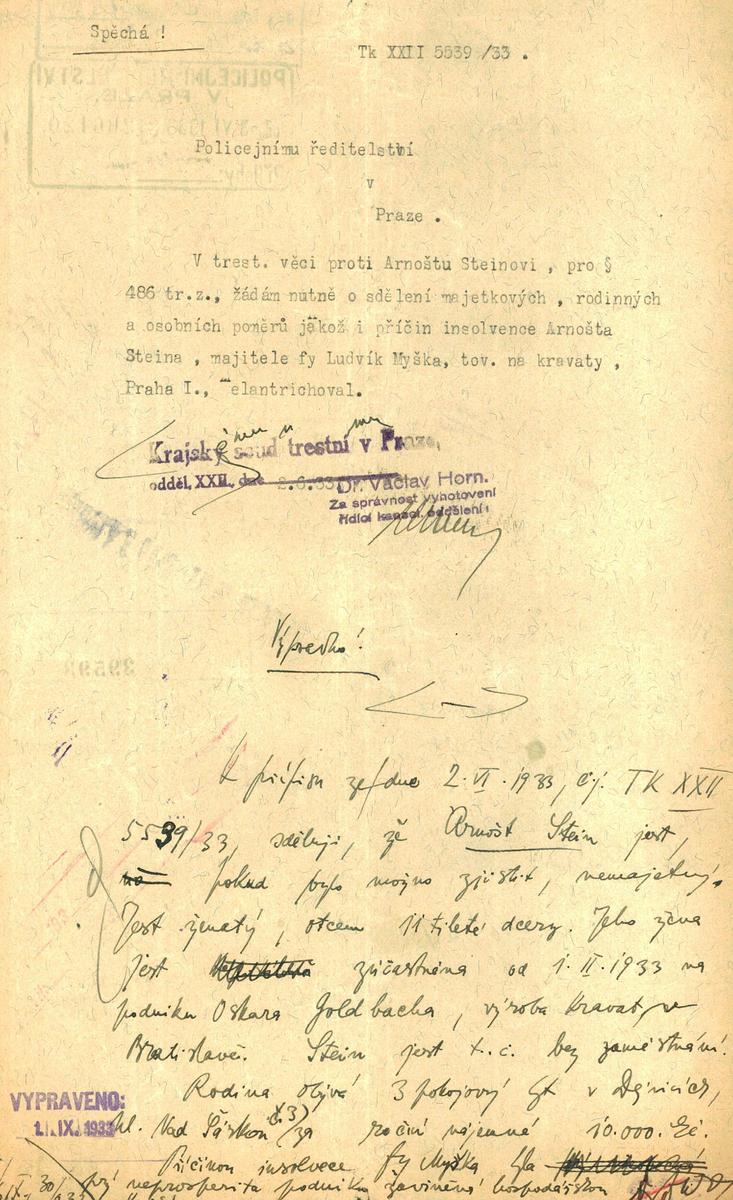 Spěchá !
Tk XXII 5539 /33 .
Policejnímu ředitelství
v
Praze .
V trest. věci proti Arnoštu Steinovi , pro §
486 tr.z., žádám nutně o sdělení majetkových , rodinných
a osobních poměrů jakož i příčin insolvence Arnošta
Steina , majitele fy Ludvík Myška, tov. na kravaty ,
Praha I., elantrichoval.
Krajský soud trestní v Praze,
odděl. XXII., dne 2.6.33
Dr. Václav Horn.
Za správnost vyhotovení
řídící kancel. oddělení:
K přípisu ze dne 2.VI.1933, čj. TK XXII
5539/33, sděluji, že Arnošt Stein jest,
pokud bylo možno zjistit, nemajetný.
Jest ženatý, otcem 11 tileté dcery. Jeho žena
jest zúčastněna od 1.II.1933 na
podniku Oskara Goldbacha, výroba kravat, v
Bratislavě. Stein jest t.č. bez zaměstnání.
Rodina obývá 3 pokojový byt v Dejvicích,
VYPRAVENO:
1.IX.1933
ul. Nad Šárkou č.3) za roční nájemné 10.000.Kč.
Příčinou insolvece fy Myška byla
neprosperita podniku zaviněná hospodářskou